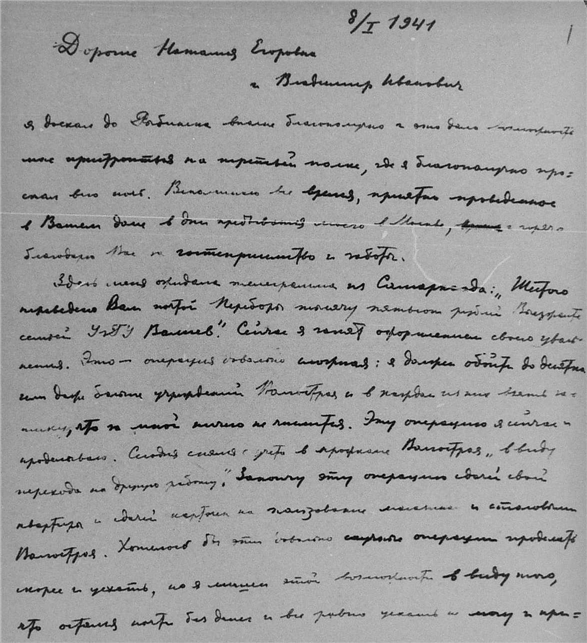 8/I 1941
Дорогие Наталия Егоровна
и Владимир Иванович
я доехал до Рыбинска вполне благополучно и это дало возможность
мне пристроиться на третьей полке, где я благополучно про-
спал всю ночь. Вспоминаю все время, приятно проведенное
в Вашем доме в дни пребывания моего в Москве, и горячо
благодарю Вас за гостеприимство и заботы.
Здесь меня ожидала телеграмма из Самарканда: „Шестого
переведено Вам почтой Переборы тысячу пятьсот рублей Выезжайте
семьей УзГУ Валиев". Сейчас я занят оформлением своего уволь-
нения. Это — операция довольно сложная: я должен обойти до десятка
или даже больше учреждений Волгостроя и в каждом из них взять за-
писку, что за мной ничего не числится. Эту операцию я сейчас и
проделываю. Сегодня снялся с учета в профкоме Волгостроя „в виду
перехода на другую работу". Закончу эту операцию сдачей своей
квартиры и сдачей карточек на пользование магазинами и столовыми
Волгостроя. Хотелось бы эти довольно скучные операции проделать
скорее и уехать, но я лишен этой возможности в виду того,
что остался почти без денег и все равно уехать не могу и при-